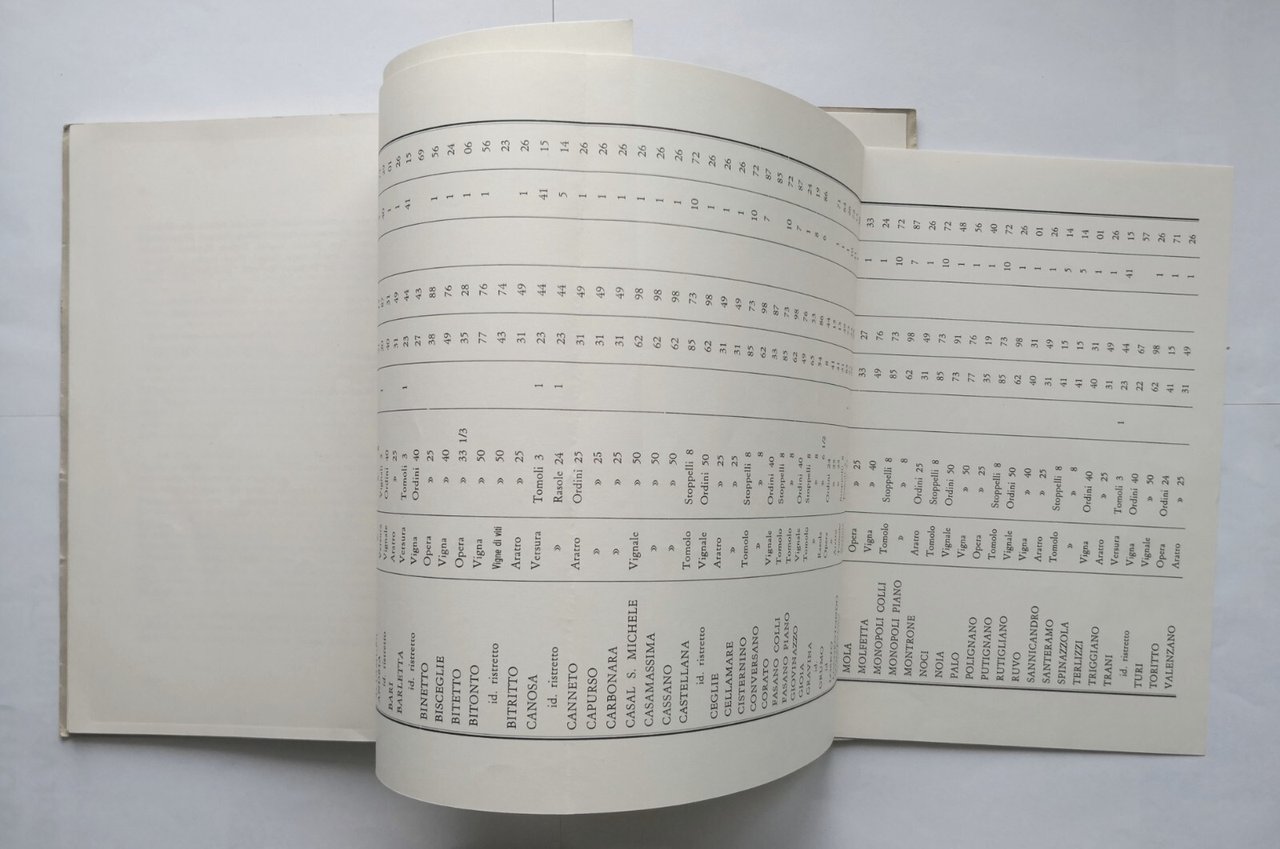 BARI Aratro » 25 31 49 1 26
BARLETTA Versura Tomoli 3 1 23 44 41 15
id. ristretto Vigna Ordini 40 27 43 69
BINETTO Opera » 25 38 88 1 56
BISCEGLIE Vigna » 40 49 76 1 24
BITETTO Opera » 33 1/3 35 28 1 06
BITONTO Vigna » 50 77 76 1 56
id. ristretto Vigne di viti » 50 43 74 23
BITRITTO Aratro » 25 31 49 1 26
CANOSA Versura Tomoli 3 1 23 44 41 15
id. ristretto » Rasole 24 1 23 44 5 14
CANNETO Aratro Ordini 25 31 49 1 26
CAPURSO » » 25 31 49 1 26
CARBONARA » » 25 31 49 1 26
CASAL S. MICHELE Vignale » 50 62 98 1 26
CASAMASSIMA » » 50 62 98 1 26
CASSANO » » 50 62 98 1 26
CASTELLANA Tomolo Stoppelli 8 85 73 10 72
id. ristretto Vignale Ordini 50 62 98 1 26
CEGLIE Aratro » 25 31 49 1 26
CELLAMARE » » 25 31 49 1 26
CISTERNINO Tomolo Stoppelli 8 85 73 10 72
CONVERSANO » » 8 62 98 7 87
CORATO Vignale Ordini 40 33 87 85
FASANO COLLI Tomolo Stoppelli 8 85 73 10 72
FASANO PIANO Tomolo » 8 62 98 7 87
GIOVINAZZO Vignale Ordini 40 49 76 1 24
GIOIA Tomolo Stoppelli 8
GRAVINA
MOLA Opera » 25 33 27 1 33
MOLFETTA Vigna » 40 49 76 1 24
MONOPOLI COLLI Tomolo Stoppelli 8 85 73 10 72
MONOPOLI PIANO » » 8 62 98 7 87
MONTRONE Aratro Ordini 25 31 49 1 26
NOCI Tomolo Stoppelli 8 85 73 10 72
NOIA Vignale Ordini 50 73 91 1 48
PALO Vigna » 50 77 76 1 56
POLIGNANO Opera » 25 35 19 1 40
PUTIGNANO Tomolo Stoppelli 8 85 73 10 72
RUTIGLIANO Vignale Ordini 50 62 98 1 26
RUVO Vigna » 40 40 31 1 01
SANNICANDRO Aratro » 25 31 49 1 26
SANTERAMO Tomolo Stoppelli 8 41 15 5 14
SPINAZZOLA » » 8 41 15 5 14
TERLIZZI Vigna Ordini 40 40 31 1 01
TRIGGIANO Aratro » 25 31 49 1 26
TRANI Versura Tomoli 3 1 23 44 41 15
id. ristretto Vigna Ordini 40 22 67 57
TURI Vignale » 50 62 98 1 26
TORITTO Opera Ordini 24 41 15 1 71
VALENZANO Aratro » 25 31 49 1 26